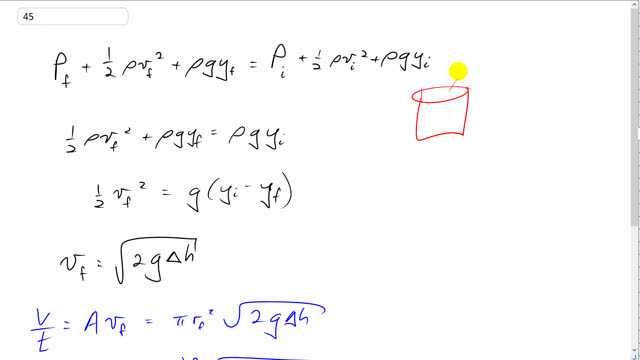 45
P_f + 1/2 ρv_f² + ρgy_f = P_i + 1/2 ρv_i² + ρgy_i
1/2 ρv_f² + ρgy_f = ρgy_i
1/2 v_f² = g(y_i - y_f)
v_f = √(2gΔh)
V/t = A v_f = πr_f² √(2gΔh)